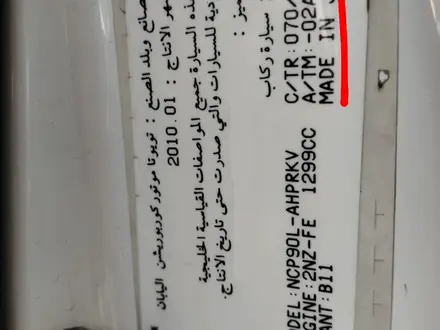 صانع وبلد الصنع : تويوتا موتور كوربوريشن اليابان
هر الانتاج : 2010.01
هذه السيارة جميع المواصفات القياسية الخليجية
دية للسيارات والتي صدرت حتى تاريخ الانتاج.
: سيارة ركاب
C/TR:070/
A/TM:-02A
MADE IN
DEL:NCP90L-AHPRKV
GINE:2NZ-FE 1299CC
ANT:B11